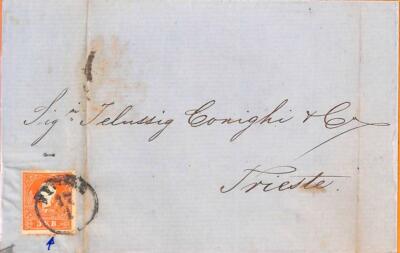 Sig.ri Telussig Conighi & C.
Trieste.
17